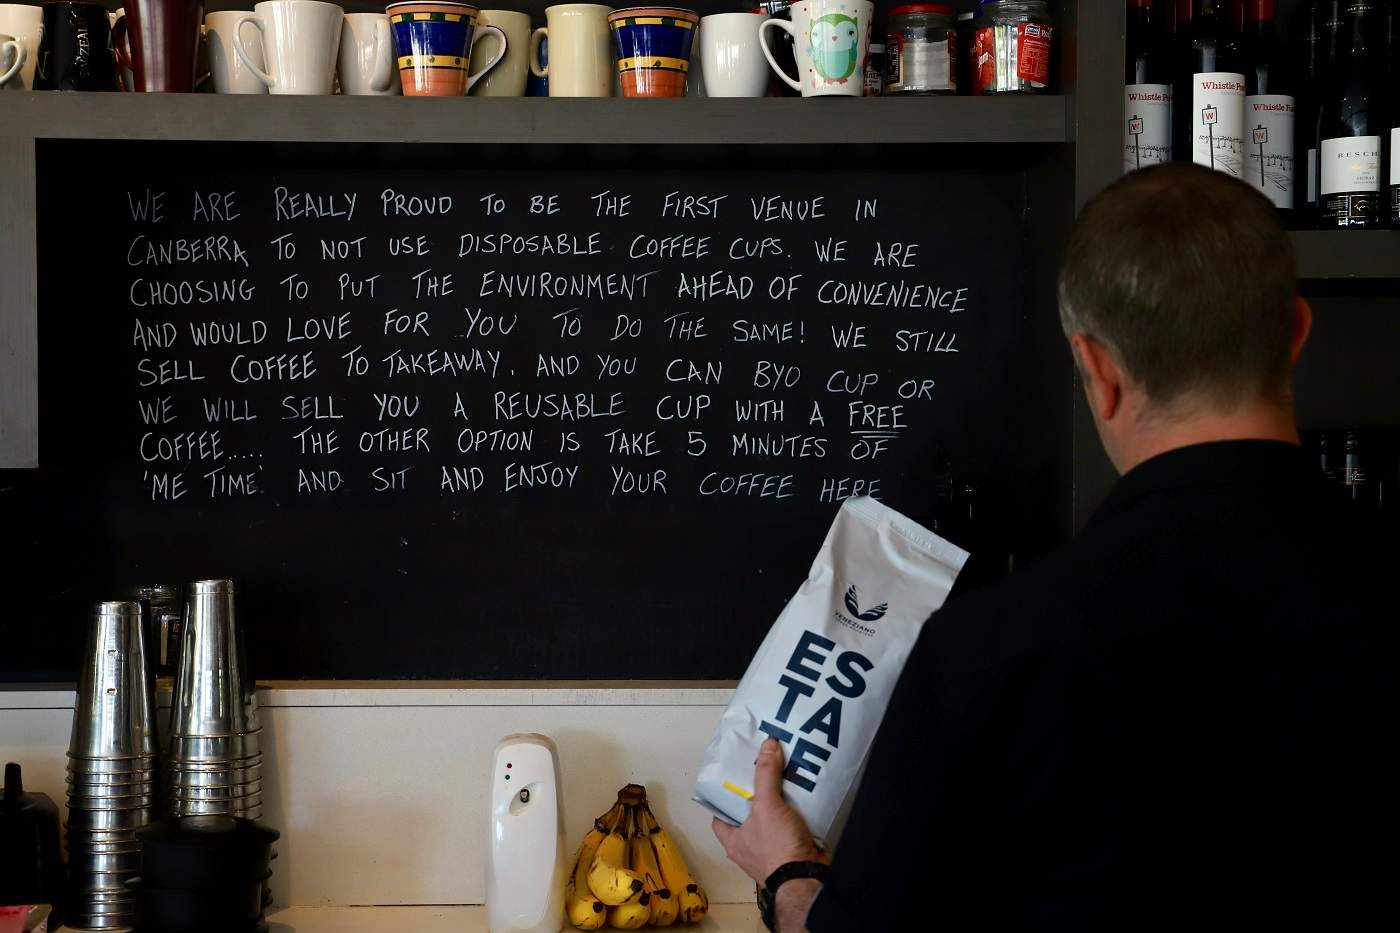 WE ARE REALLY PROUD TO BE THE FIRST VENUE IN
CANBERRA TO NOT USE DISPOSABLE COFFEE CUPS. WE ARE
CHOOSING TO PUT THE ENVIRONMENT AHEAD OF CONVENIENCE
AND WOULD LOVE FOR YOU TO DO THE SAME! WE STILL
SELL COFFEE TO TAKEAWAY. AND YOU CAN BYO CUP OR
WE WILL SELL YOU A REUSABLE CUP WITH A FREE
COFFEE..... THE OTHER OPTION IS TAKE 5 MINUTES OF
'ME TIME' AND SIT AND ENJOY YOUR COFFEE HERE
VENEZIANO
ES
TA
TE
Whistle
Whistle
Whistle
W
W
W
RESCH